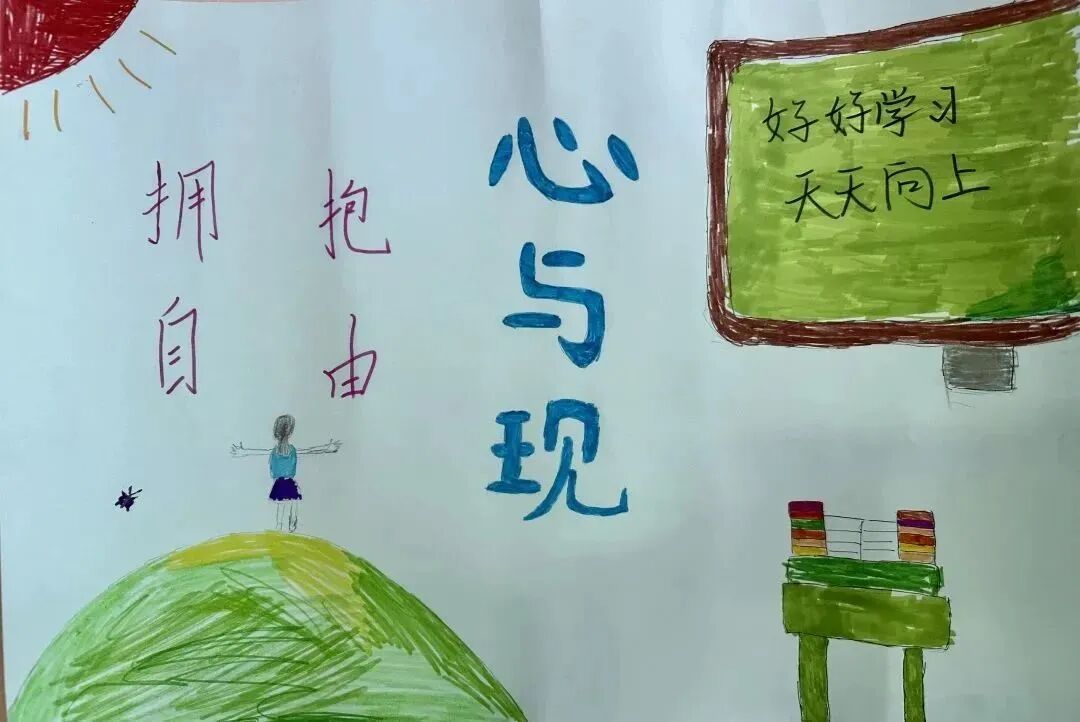 拥抱
自由
心与现
好好学习
天天向上